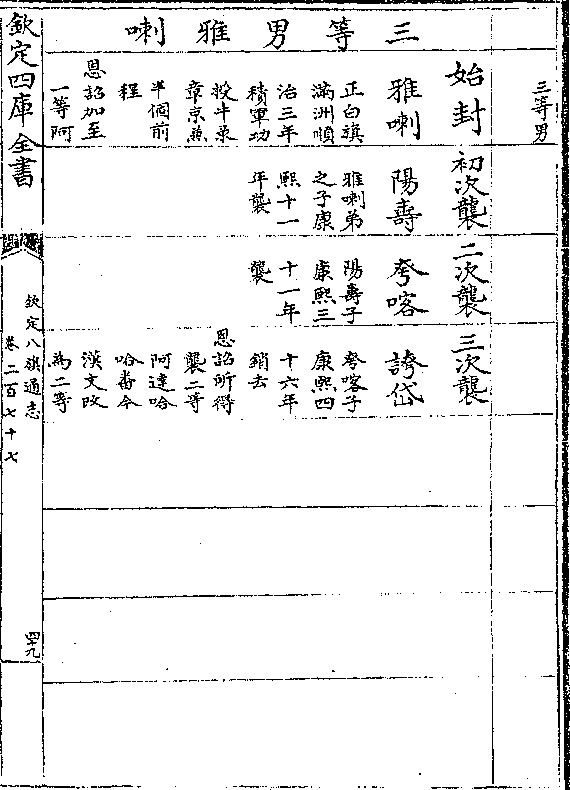 三等男
三等男雅喇
始封
雅喇
正白旗
滿洲順
治三年
積軍功
授牛录
章京兼
半個前
程
恩詔加至
一等阿
初次襲
陽壽
雅喇弟
之子康
熙十一
年襲
二次襲
夸喀
陽壽子
康熙三
十一年
襲
三次襲
誇岱
夸喀子
康熙四
十六年
銷去
恩詔所得
襲二等
阿達哈
哈番今
漢文改
為二等
欽定四庫全書
欽定八旗通志
卷二百七十七
四十九